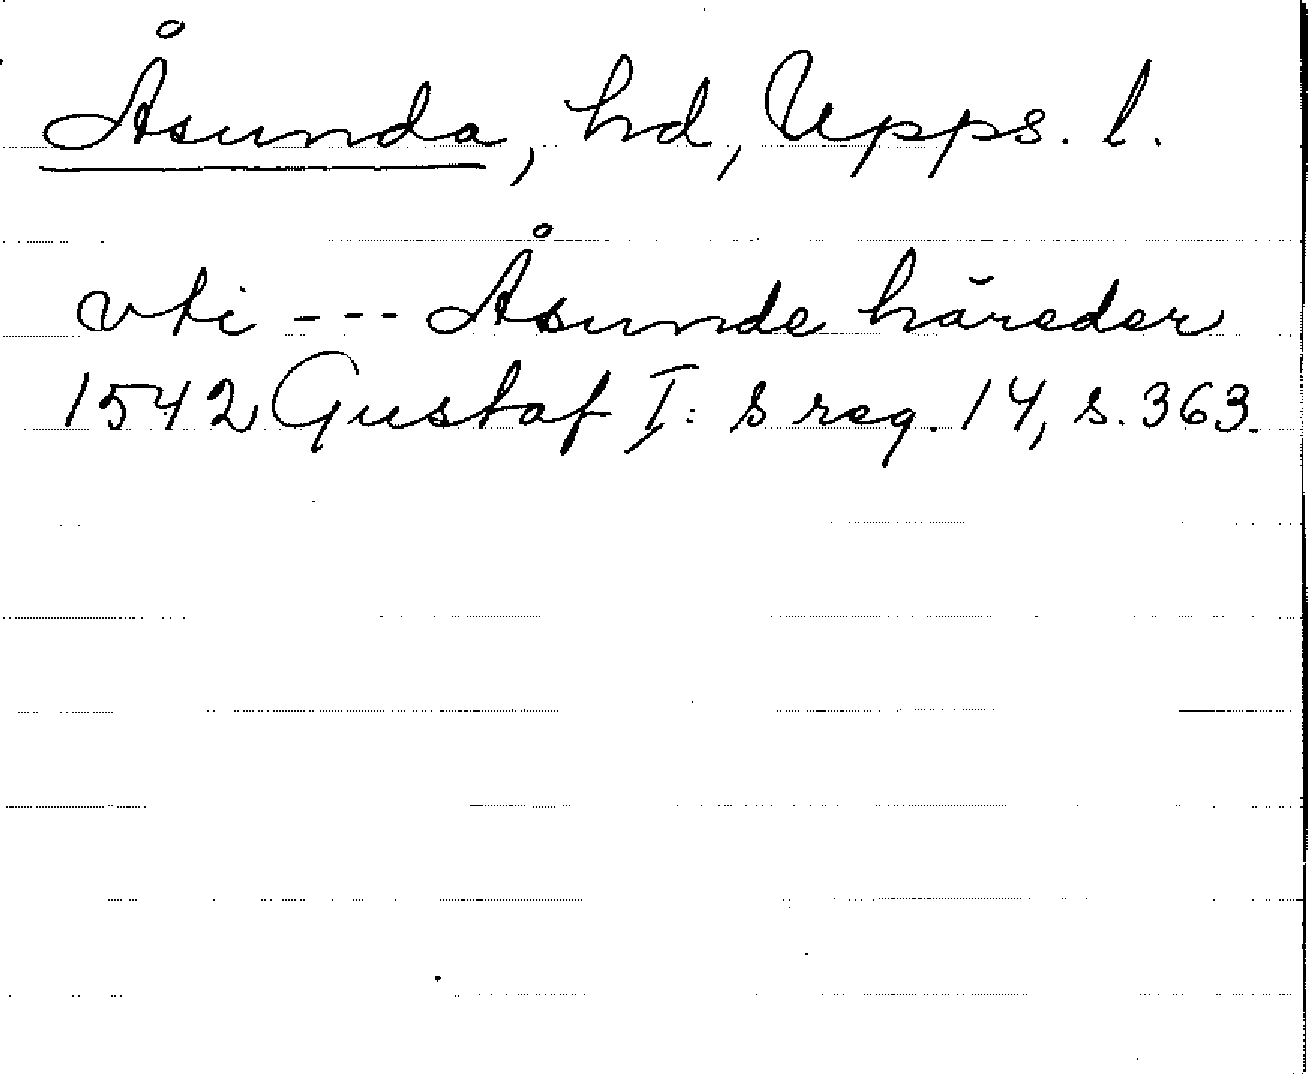 Åsunda, hd, Upps. l.
vti --- Åsunde häreder
1542 Gustaf I:s reg. 14, s. 363.